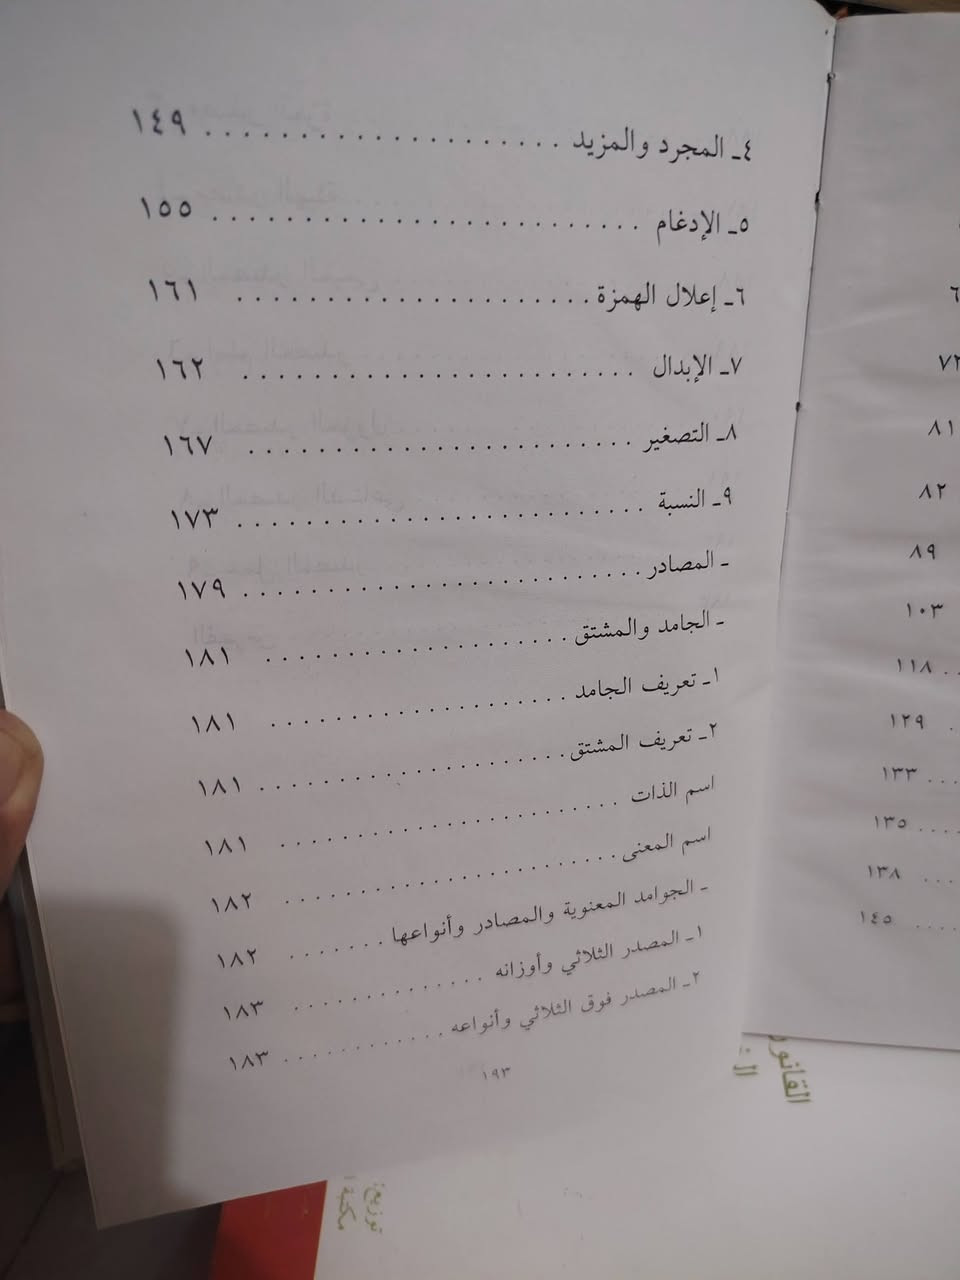 ٤ـ المجرد والمزيد . . . . . . . . . . . . . . . . . . . . ١٤٩
٥ـ الإدغام . . . . . . . . . . . . . . . . . . . . . . . . . . ١٥٥
٦ـ إعلال الهمزة . . . . . . . . . . . . . . . . . . . . . . ١٦١
٧ـ الإبدال . . . . . . . . . . . . . . . . . . . . . . . . ١٦٢
٨ـ التصغير . . . . . . . . . . . . . . . . . . . . . . . . ١٦٧
٩ـ النسبة . . . . . . . . . . . . . . . . . . . . . . . . . ١٧٣
ـ المصادر . . . . . . . . . . . . . . . . . . . . . . . . . ١٧٩
ـ الجامد والمشتق . . . . . . . . . . . . . . . . . . . ١٨١
١ـ تعريف الجامد . . . . . . . . . . . . . . . . . . . ١٨١
٢ـ تعريف المشتق . . . . . . . . . . . . . . . . . . . . ١٨١
اسم الذات . . . . . . . . . . . . . . . . . . . . . . . ١٨١
اسم المعنى . . . . . . . . . . . . . . . . . . . . . . . ١٨٢
ـ الجوامد المعنوية والمصادر وأنواعها . . . . . . . ١٨٢
١ـ المصدر الثلاثي وأوزانه . . . . . . . . . . . . . . ١٨٣
٢ـ المصدر فوق الثلاثي وأنواعه . . . . . . . . . . . . ١٨٣
١٩٣
٧٢
٨١
٨٢
٨٩
١٠٣
١١٨
١٢٩
١٣٣
١٣٥
١٣٨
١٤٥
توزيع:
مكتبة